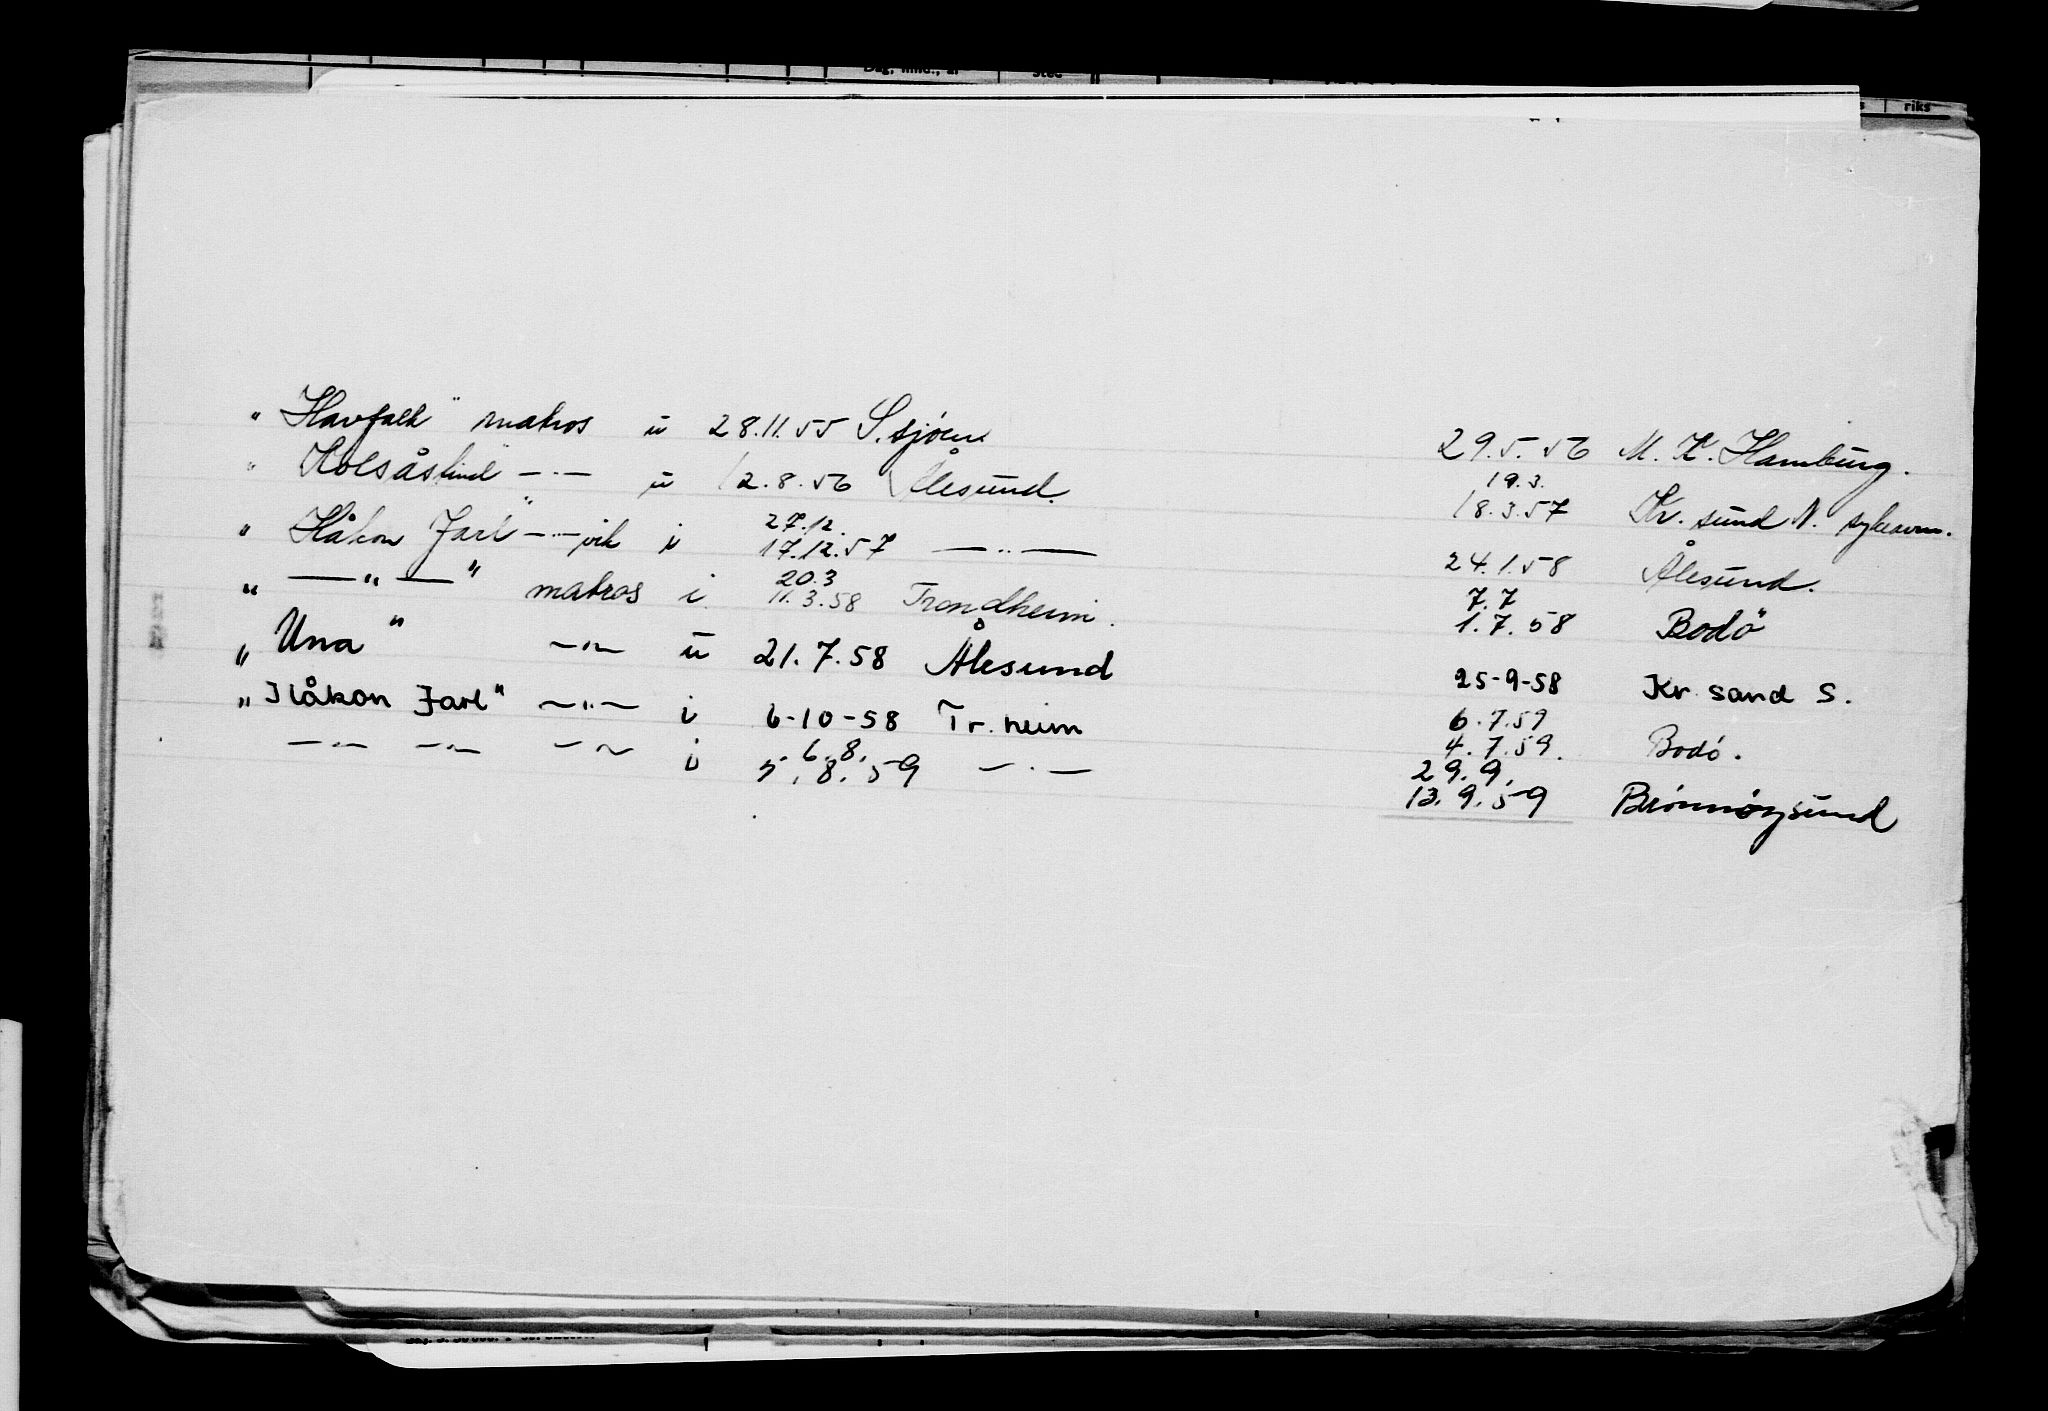 riks
„ Havfalk " matros u 28.11.55 S. sjøen 29.5.56 M. K. Hamburg.
„ Kolsåstind " -"- u 12.8.56 Ålesund. 19.3. 18.3.57 Kr. sund N.
„ Håkon Jarl " -"- vik i 27.12. 17.12.57 —"— 24.1.58 Ålesund.
„ —"— " matros i 20.3 11.3.58 Trondheim. 7.7 1.7.58 Bodö
„ Una " -"- u 21.7.58 Ålesund 25-9-58 Kr. sand S.
„ Håkon Jarl " -"- i 6-10-58 Tr. heim 6.7.59 4.7.59. Bodø.
-"- -"- -"- i 6.8. 5.8.59 -"- 29.9. 13.9.59 Brønnøysund